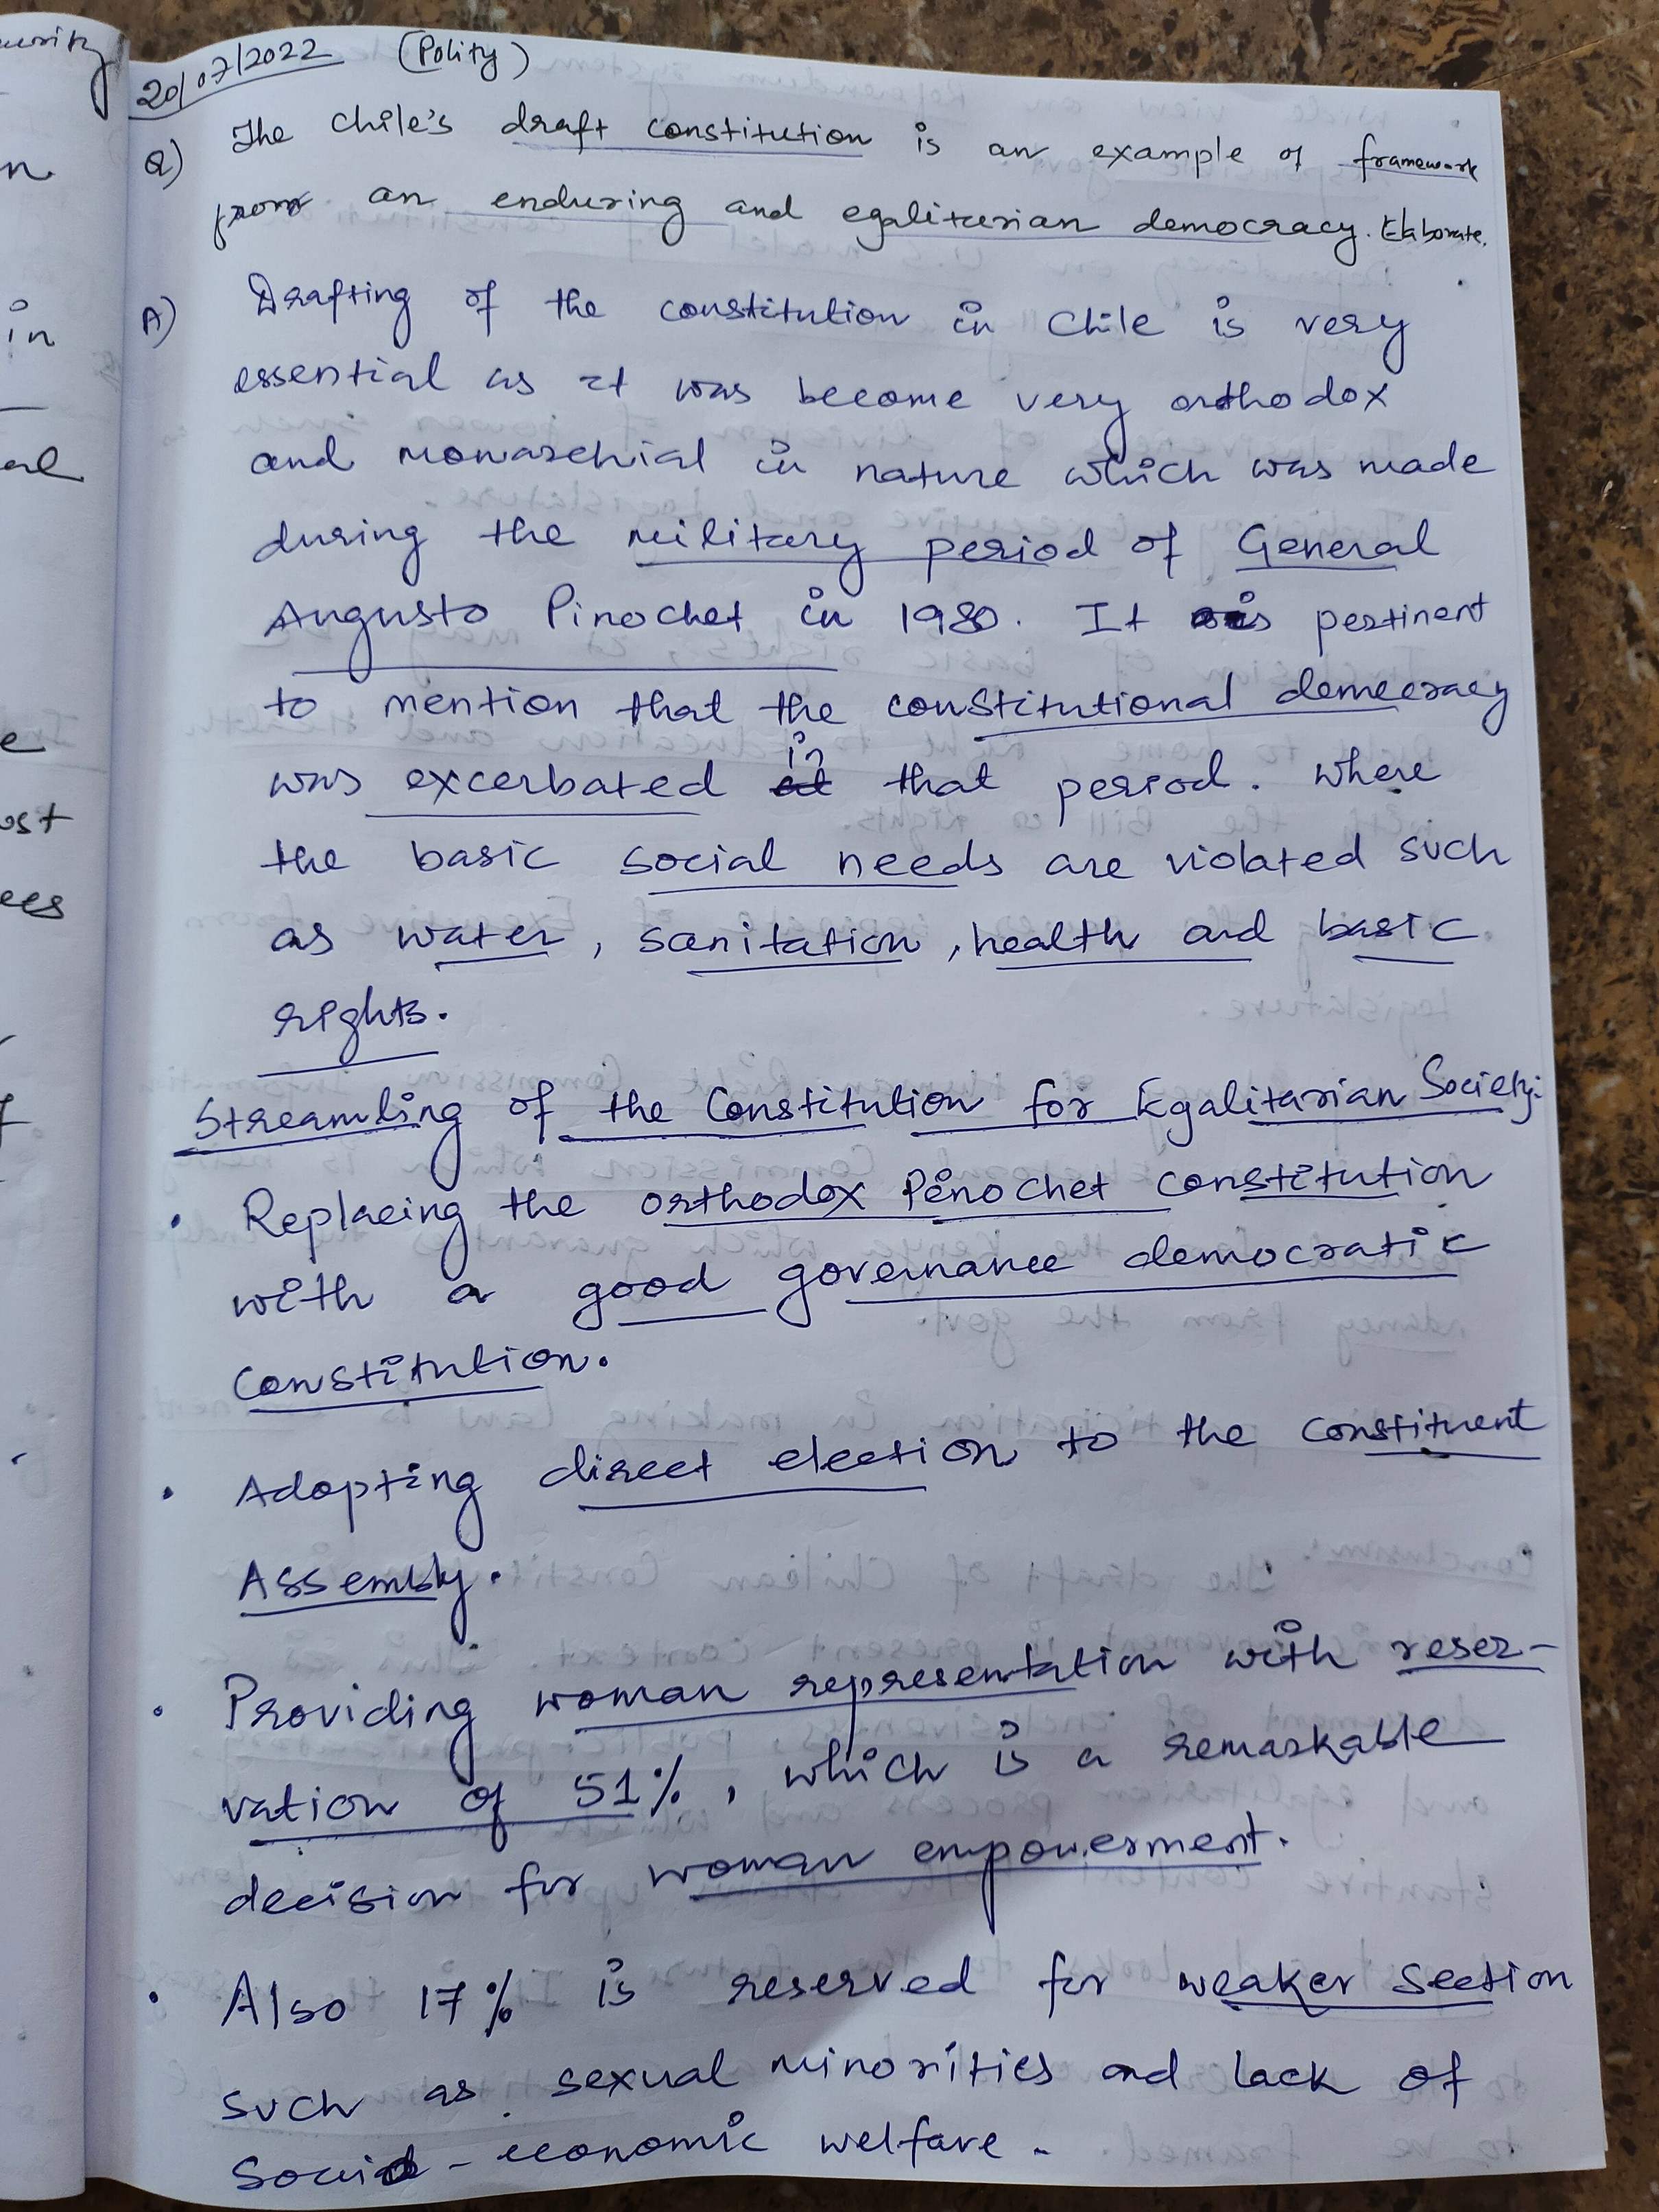 20/07/2022 (Polity)
Q) The Chile's draft constitution is an example of framework
from an enduring and egalitarian democracy. Elaborate.
A) Drafting of the constitution in Chile is very
essential as it was become very orthodox
and monarchial in nature which was made
during the military period of General
Augusto Pinochet in 1980. It is pertinent
to mention that the constitutional democracy
was excerbated in that period. Where
the basic social needs are violated such
as water, sanitation, health and basic
rights.
Streamling of the Constitution for Egalitarian Society:
• Replacing the orthodox Pinochet constitution
with a good governance democratic
constitution.
• Adopting direct election to the constituent
Assembly.
• Providing woman representation with reser-
vation of 51%, which is a remarkable
decision for woman empowerment.
• Also 17% is reserved for weaker section
such as sexual minorities and lack of
Socio-economic welfare.
in
al
e
ees